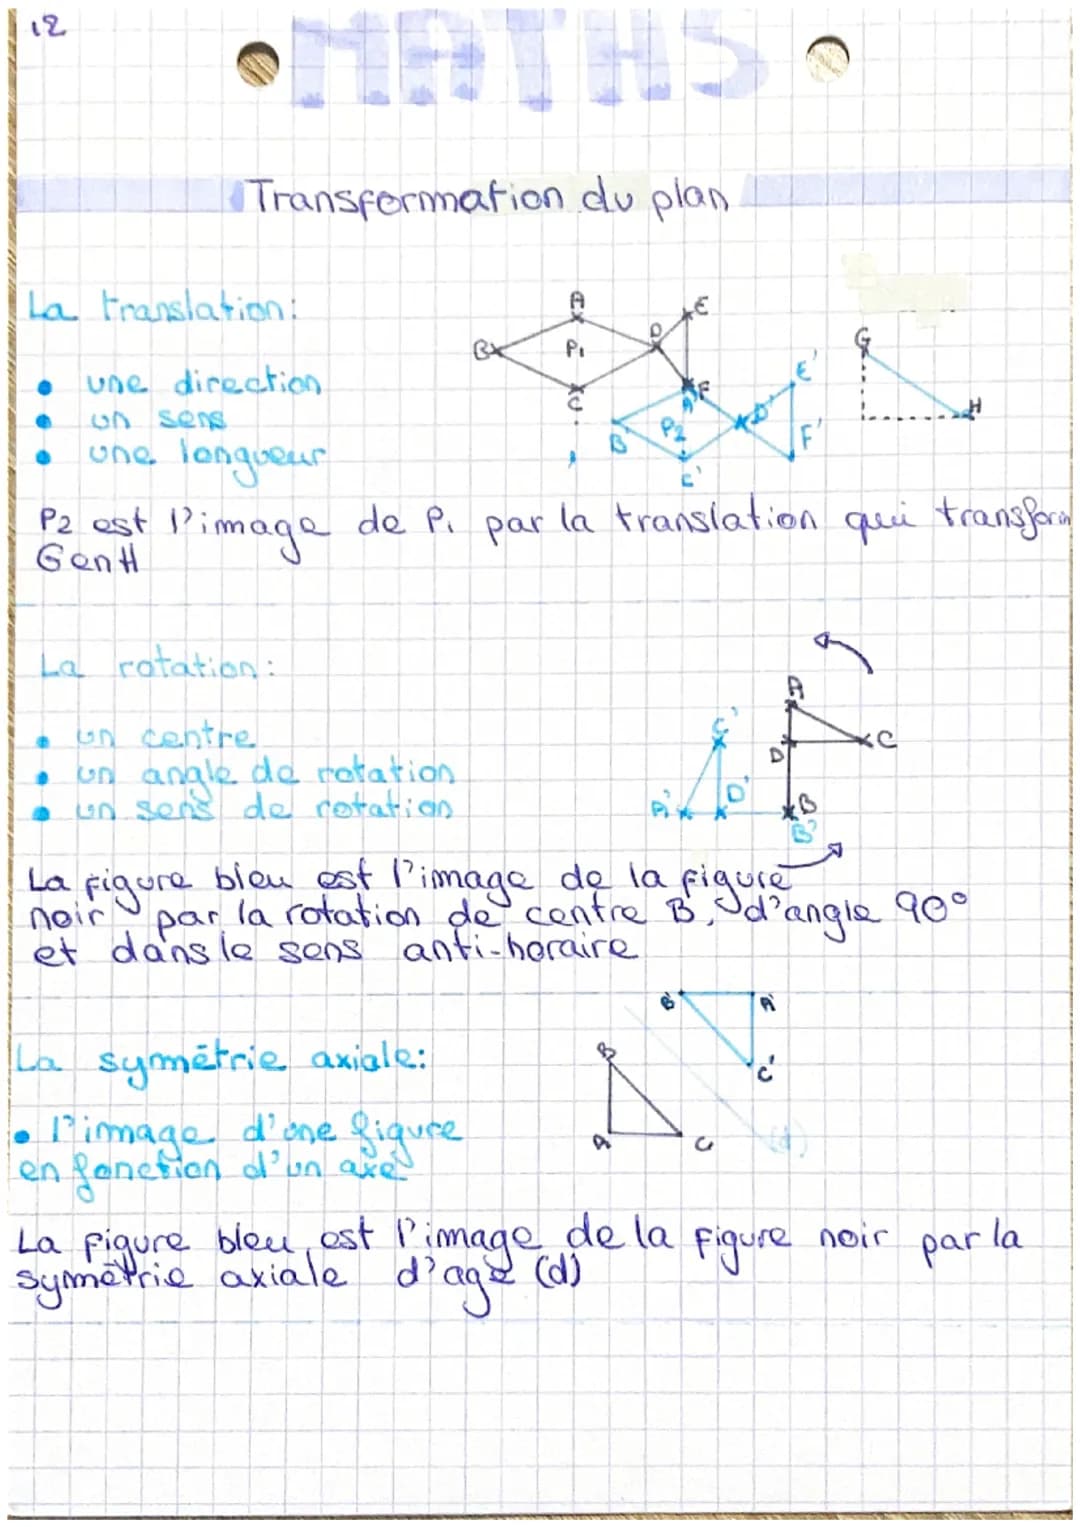 12
MATHS
Transformation du plan
La translation:
• une direction
• un sens
• une longueur
A
B
P1
C
D
E
F
A'
B'
P2
C'
D'
E'
F'
G
H
P2 est l'image de P1 par la translation qui transform
G en H
La rotation:
• un centre
• un angle de rotation
• un sens de rotation
A
C
D
B
B'
C'
D'
A'
La figure bleu est l'image de la figure
noir par la rotation de centre B, d'angle 90°
et dans le sens anti-horaire
La symétrie axiale:
• l'image d'une figure
en fonction d'un axe
B'
A'
C'
B
A
C
(d)
La figure bleu est l'image de la figure noir par la
symétrie axiale d'age (d)